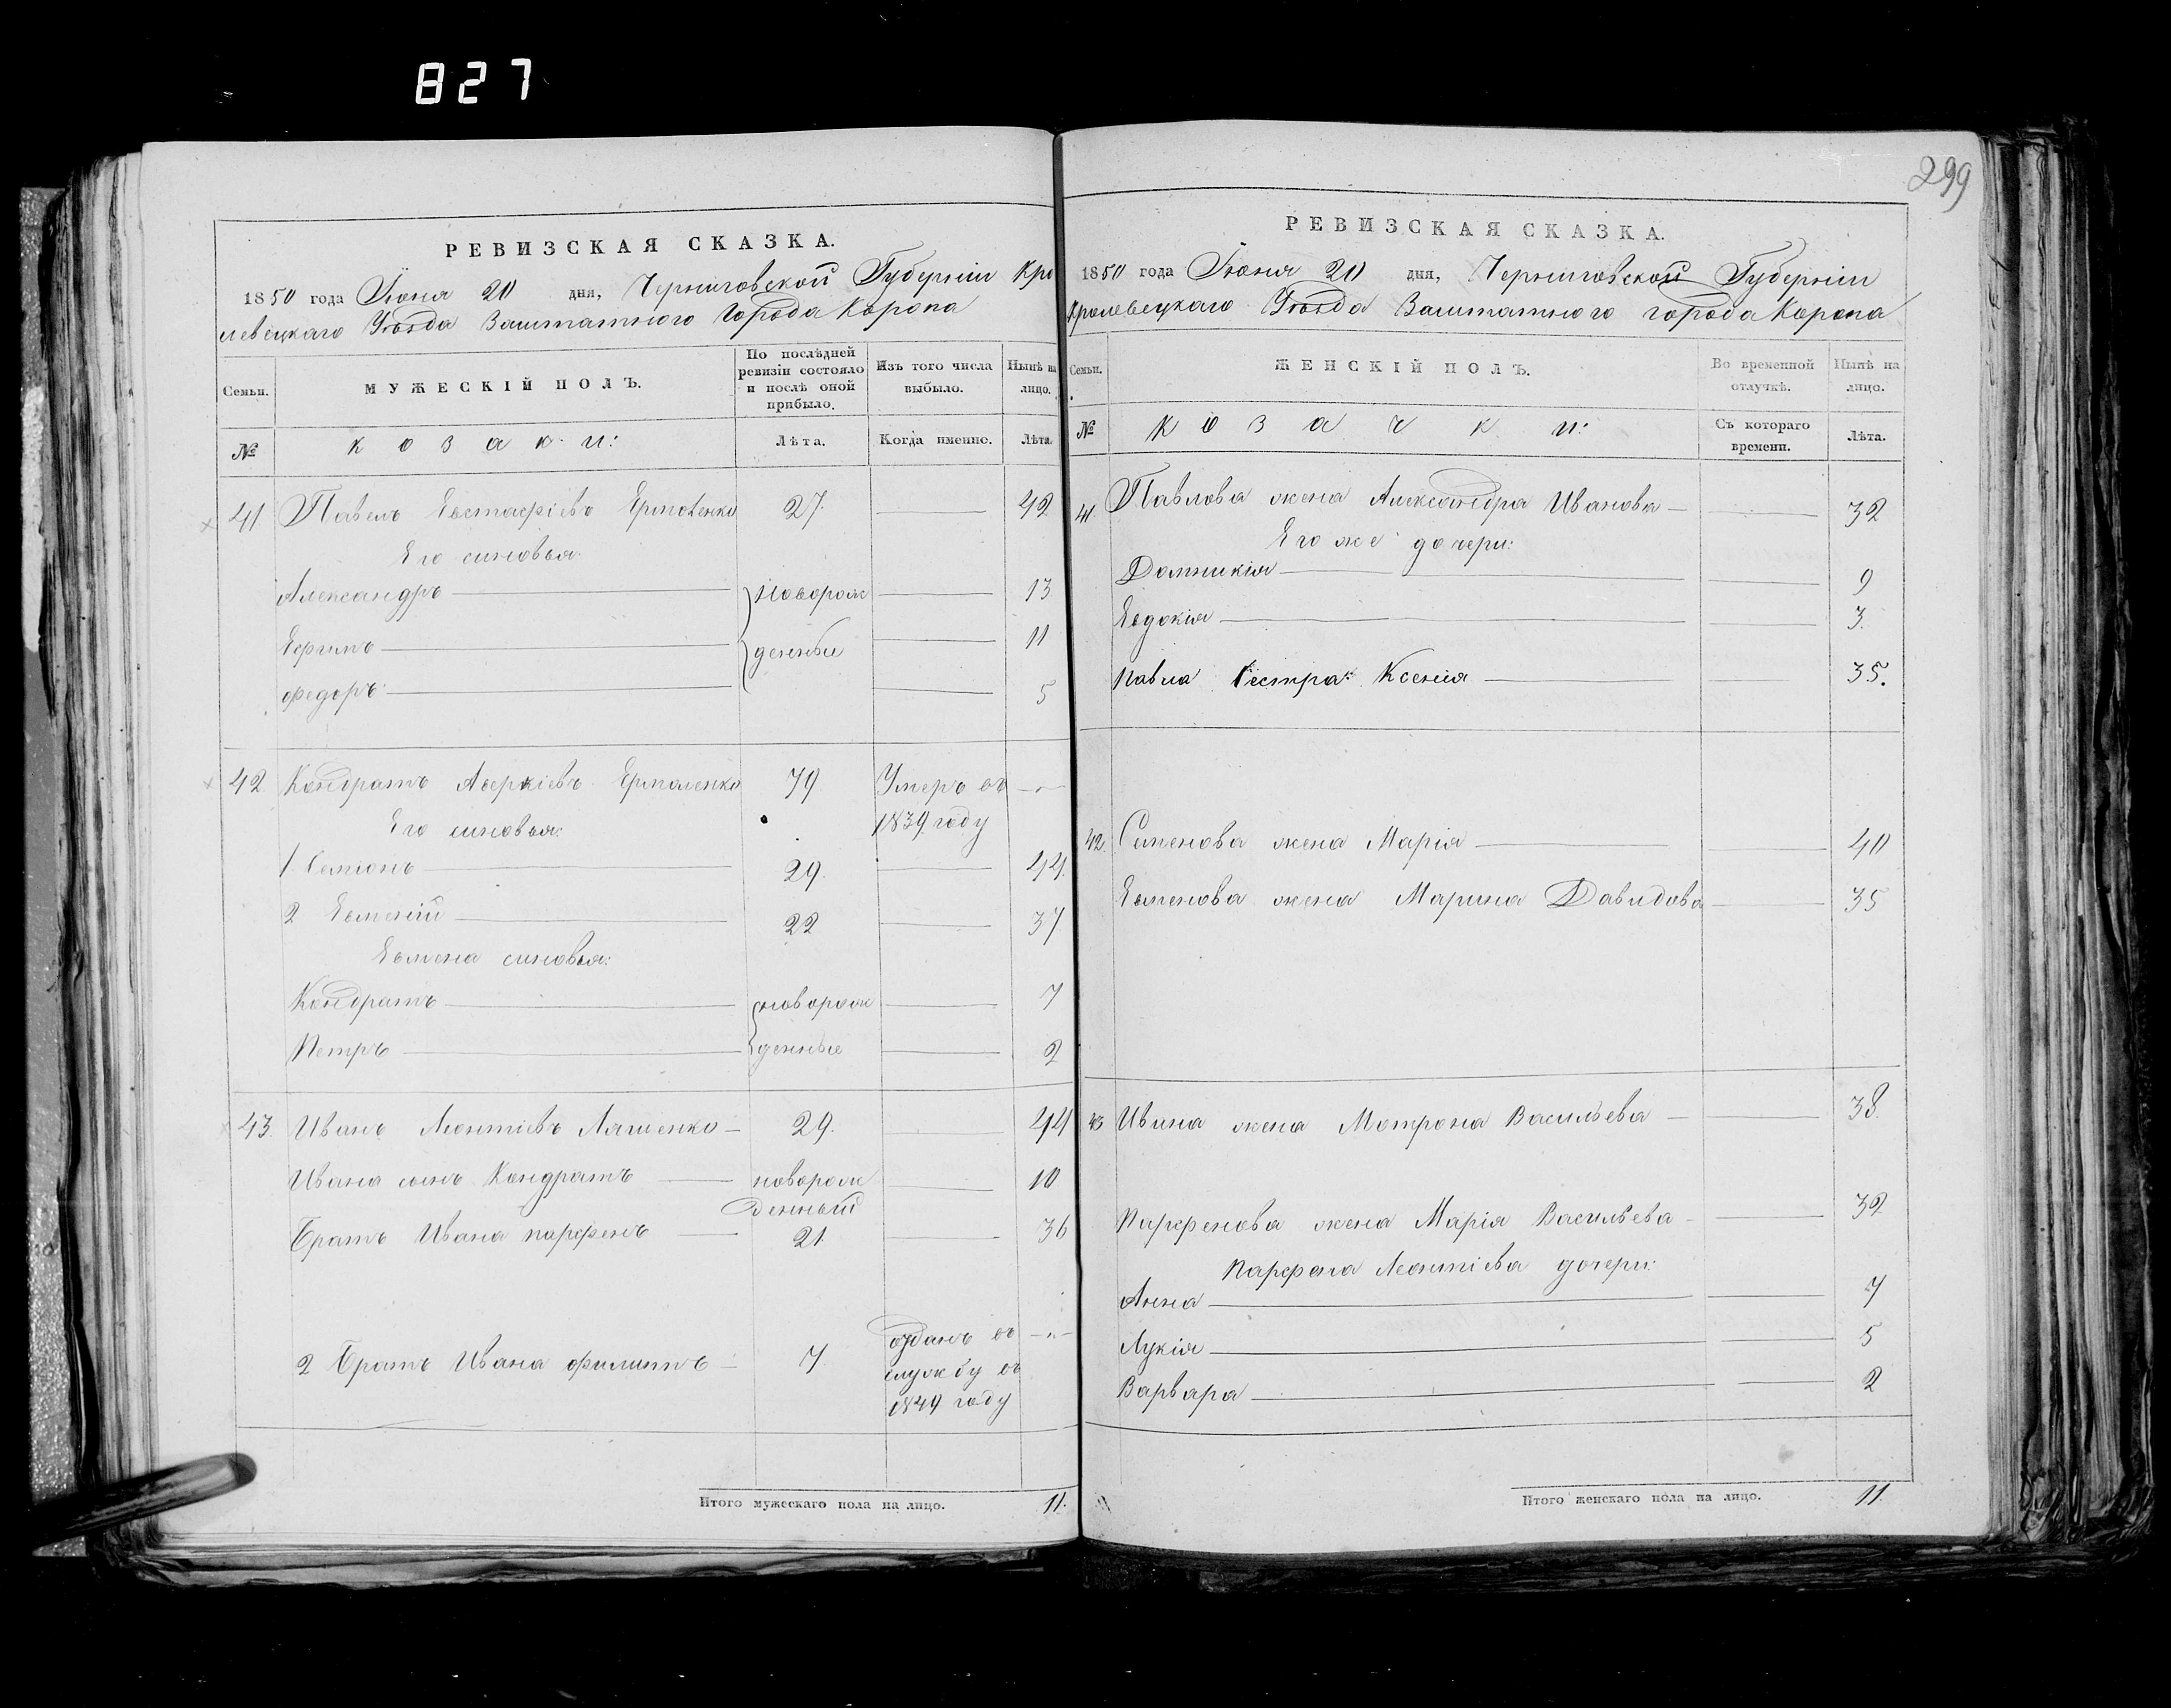 827
299
РЕВИЗСКАЯ СКАЗКА.
1850 года Іюня 20 дня, Черниговской Губерніи Кро
левецкаго Уѣзда Заштатного Города Коропа
Семьи.
МУЖЕСКІЙ ПОЛЪ.
По послѣдней ревизіи состояло и послѣ оной прибыло.
Изъ того числа выбыло.
Нынѣ на лицо.
№
козаки:
Лѣта.
Когда именно.
Лѣта.
41 Павелъ Евстафіевъ Ермоленко 27. 42
Его синовья:
Александръ новорож 13
Ефимъ денные 11
Федоръ 5
42 Кондратъ Аверкіевъ Ермоленко 79 Умеръ въ
Его синовья: 1839 году
1 Семіонъ 29. 44.
2 Евменій 22 37
Евмена синовья:
Кондратъ новорож 7
Петръ денные 2
43. Иванъ Леонтіевъ Ляшенко 29. 44
Ивана сынъ Кондратъ новорож 10
денный
Братъ Ивана парфенъ 21 36
2 Братъ Ивана филиппъ 7 отданъ въ
службу въ
1849 году
Итого мужескаго пола на лицо. 11.
РЕВИЗСКАЯ СКАЗКА.
1850 года Іюня 20 дня, Черниговской Губерніи
Кролевецкаго Уѣзда Заштатного города Коропа
Семьи.
ЖЕНСКІЙ ПОЛЪ.
Во временной отлучкѣ.
Нынѣ на лицо.
№
козачки:
Съ котораго времени.
Лѣта.
41. Павлова жена Александра Иванова 32
Его же дочери:
Домникія 9
Евдокія 3.
Павла Сестра: Ксенія 35.
42. Сименова жена Марія 40
Евменова жена Марина Давидова 35
43 Ивана жена Мотрона Васильева 38.
Парфенова жена Марія Васильева 32
Парфена Леонтіева дочери:
Анна 7
Лукія 5
Варвара 2
Итого женскаго пола на лицо. 11.